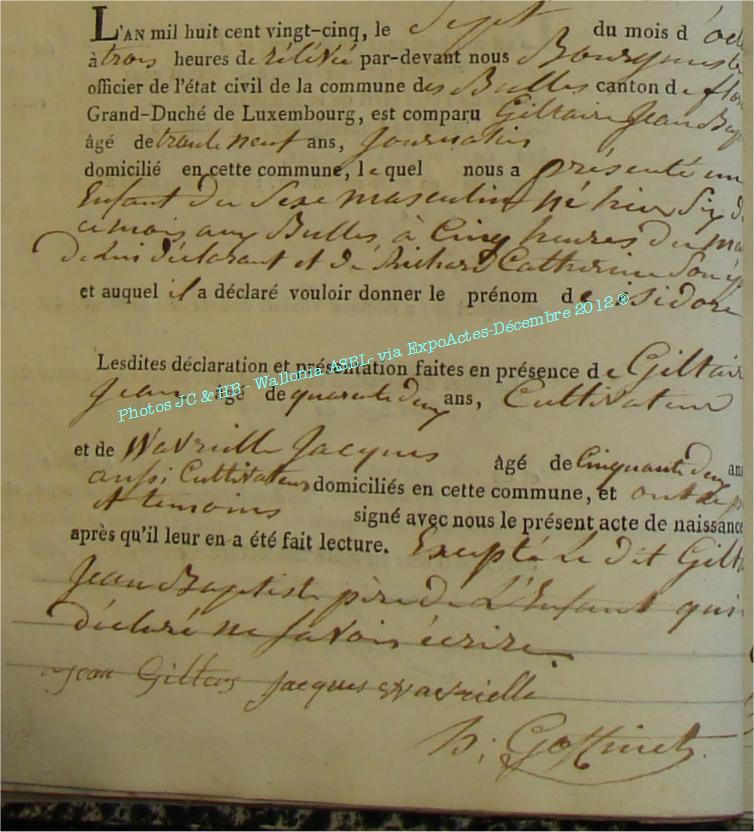 L'AN mil huit cent vingt-cinq, le Sept du mois d'oct
à trois heures de rélévée par-devant nous Bourgmestre
officier de l'état civil de la commune des Bulles canton de flor
Grand-Duché de Luxembourg, est comparu Giltaire Jean Bap
âgé de trante neuf ans, Journalier
domicilié en cette commune, lequel nous a présenté un
Enfant du Sexe masculin né hier Six de
ce mois aux Bulles à Cinq heures du ma
de Lui déclarant et de Richard Catherine Son ép
et auquel il a déclaré vouloir donner le prénom de isidore
Photos JC & HB - Wallonia ASBL- via ExpoActes-Décembre 2012 ®
Lesdites déclaration et présentation faites en présence de Giltair
Jean âgé de quarante deux ans, Cultivateur
et de Wavreille Jacques âgé de Cinquante deux ans
aussi Cultivateur domiciliés en cette commune, et ont
et temoins signé avec nous le présent acte de naissance
après qu'il leur en a été fait lecture. Excepté Le dit Gilta
Jean Baptiste père de L'Enfant qui
déclaré ne savoir écrire.
Jean Jacques Wavreille
Goffinet